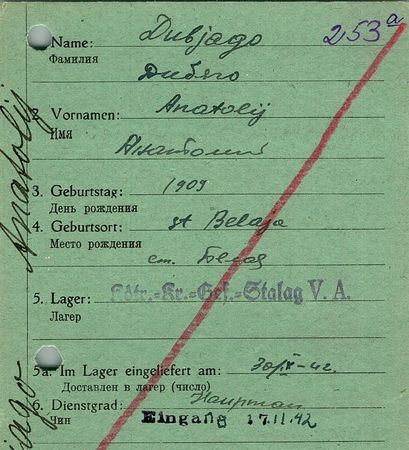 253a
Name: Dubjago
Фамилия
2. Vornamen: Anatolij
Имя
Анатолий
3. Geburtstag: 1909
День рождения
4. Geburtsort: st Belaja
Место рождения
ст. Белая
5. Lager: Kdtr.-Kr.-Gef.-Stalag V. A.
Лагерь
5a. Im Lager eingeliefert am:
Доставлен в лагерь (число)
6. Dienstgrad: Hauptman
Чин
Eingang 17.11.42
Anatolij